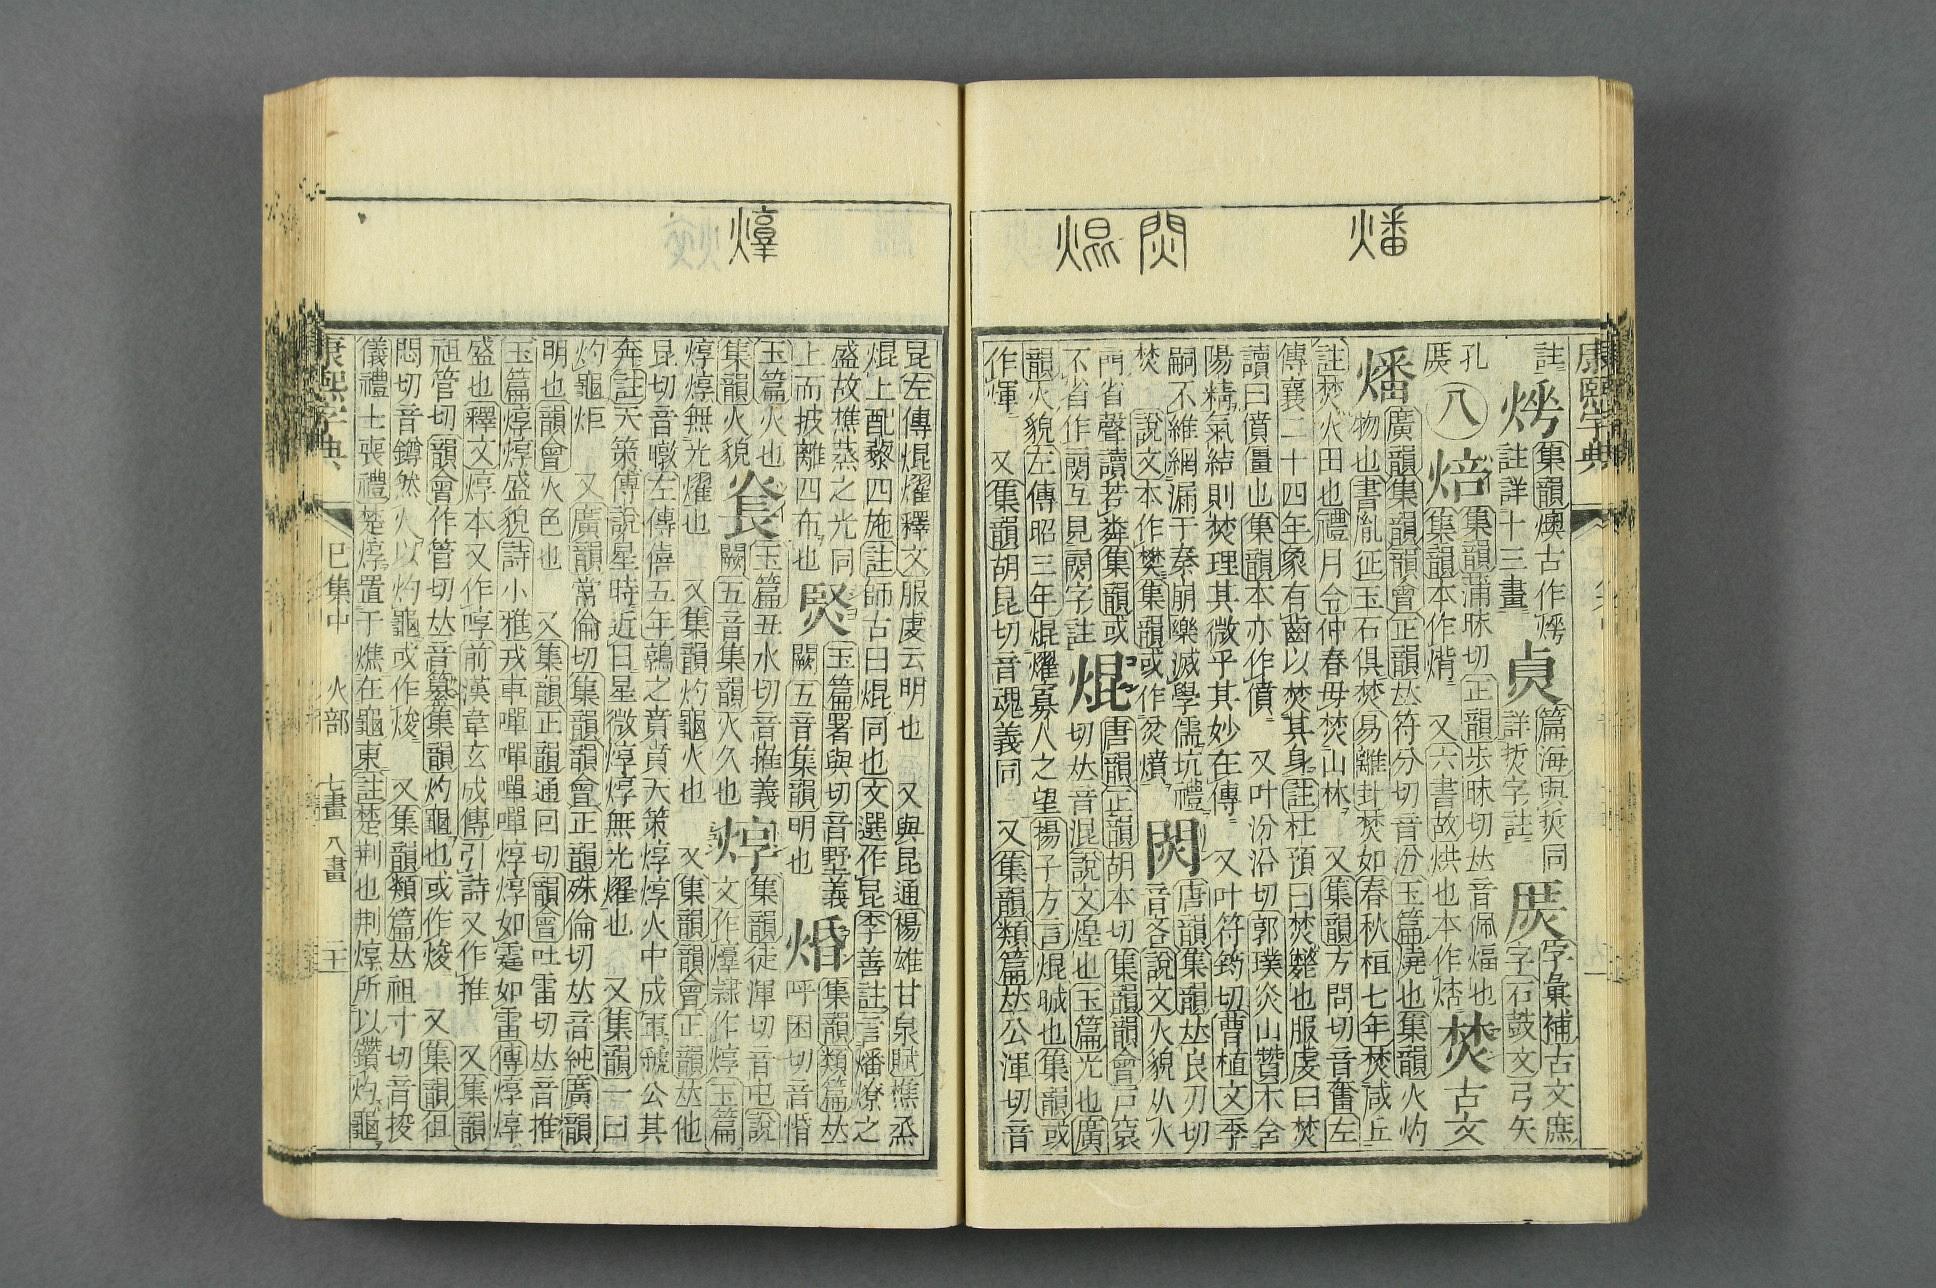 燔
焛
焜
焞
康熙字典
註 集韻燠古作 篇海與烎同 字彙補古文庶
註詳十三畫 詳烎字註 字石鼓文弓矢
孔 八 焙 集韻蒲昧切正韻步昧切𠀤音佩煏也 焚 古文
庶 集韻本作㷶 又六書故烘也本作㷶
燔 廣韻集韻韻會正韻𠀤符分切音汾玉篇燒也集韻火灼
物也書胤征玉石俱焚易離卦焚如春秋桓七年焚咸丘
註焚火田也禮月令仲春毋焚山林 又集韻方問切音奮左
傳襄二十四年象有齒以焚其身註杜預曰焚斃也服虔曰焚
讀曰僨僵也集韻本亦作僨 又叶汾沿切郭璞炎山贊不舍
陽精氣結則焚理其微乎其妙在傳 又叶符筠切曹植文季
嗣不維網漏于秦崩樂滅學儒坑禮 焛 唐韻集韻𠀤良刃切
焚 說文本作樊集韻或作炃燌 音吝說文火貌从火
門省聲讀若粦集韻或 焜 唐韻正韻胡本切集韻韻會戸袞
不省作䦨互見䦨字註 切𠀤音混說文煌也玉篇光也廣
韻火貌左傳昭三年焜燿寡人之望揚子方言焜晠也集韻或
作煇 又集韻胡昆切音魂義同 又集韻類篇𠀤公渾切音
昆左傳焜燿釋文服虔云明也 又與昆通楊雄甘泉賦樵烝
焜上配藜四施註師古曰焜同也文選作昆李善註言燔燎之
盛故樵蒸之光同 焈 玉篇署與切音墅義 㷎 集韻類篇𠀤
上而披離四布也 闕五音集韻明也 呼困切音惛
玉篇火也 玉篇丑水切音推義 焞 集韻徒渾切音屯說
集韻火貌 闕五音集韻火久也 文作㷟隷作焞玉篇
焞焞無光燿也 又集韻灼龜火也 又集韻韻會正韻𠀤他
昆切音暾左傳僖五年鶉之賁賁天策焞焞火中成軍虢公其
奔註天策傅說星時近日星微焞焞無光燿也 又集韻一曰
灼龜炬 又廣韻常倫切集韻韻會正韻殊倫切𠀤音純廣韻
明也韻會火色也 又集韻正韻通回切韻會吐雷切𠀤音推
玉篇焞焞盛貌詩小雅戎車嘽嘽嘽嘽焞焞如霆如雷傳焞焞
盛也釋文焞本又作啍前漢韋玄成傳引詩又作推 又集韻
祖管切韻會作管切𠀤音纂集韻灼龜也或作焌 又集韻徂
悶切音鐏然火以灼龜或作焌 又集韻類篇𠀤祖寸切音捘
儀禮士喪禮楚焞置于燋在龜東註楚荆也荆焞所以鑽灼龜
康熙字典 巳集中 火部 七畫 八畫 二十